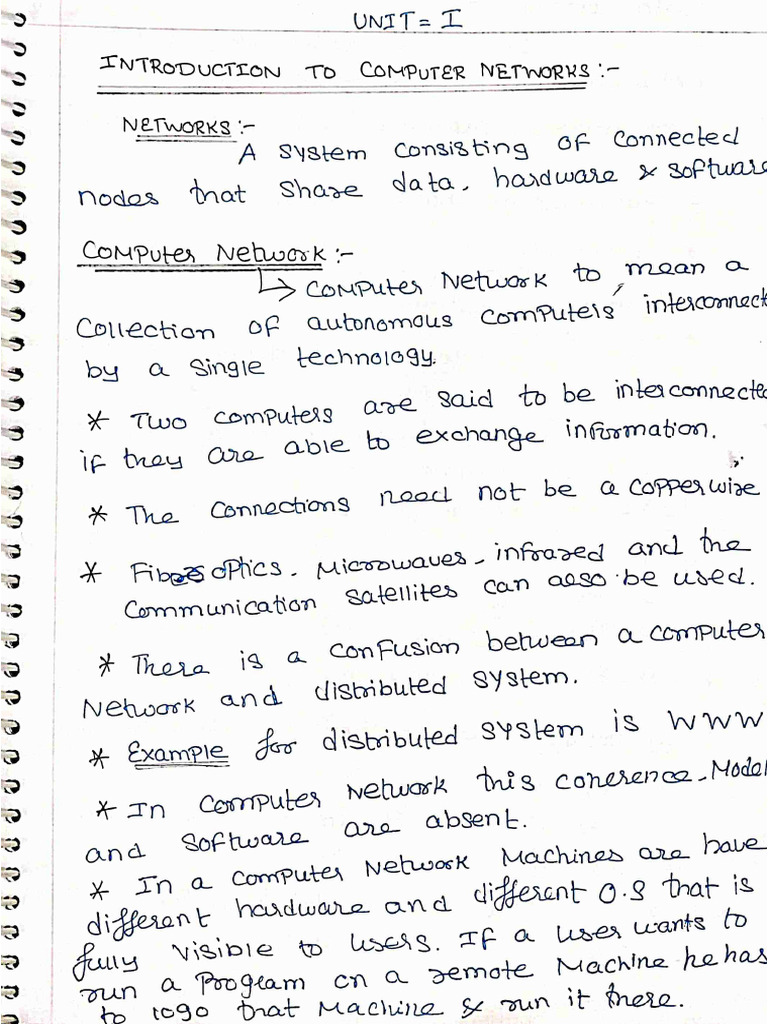 UNIT = I
INTRODUCTION TO COMPUTER NETWORKS :-
NETWORKS :-
A system consisting of connected
nodes that share data, hardware & software
Computer Network :-
→ Computer Network to mean a
Collection of autonomous computers interconnect
by a single technology.
* Two computers are said to be interconnecte
if they are able to exchange information.
* The connections need not be a copper wire
* Fibres optics, Microwaves, infrared and the
Communication satellites can also be used.
* There is a confusion between a computer
Network and distributed system.
* Example for distributed system is WWW
* In computer Network this coherence, Model
and software are absent.
* In a computer Network Machines are have
different hardware and different O.S that is
fully visible to users. If a user wants to
run a program on a remote Machine he has
to logo that Machine & run it there.